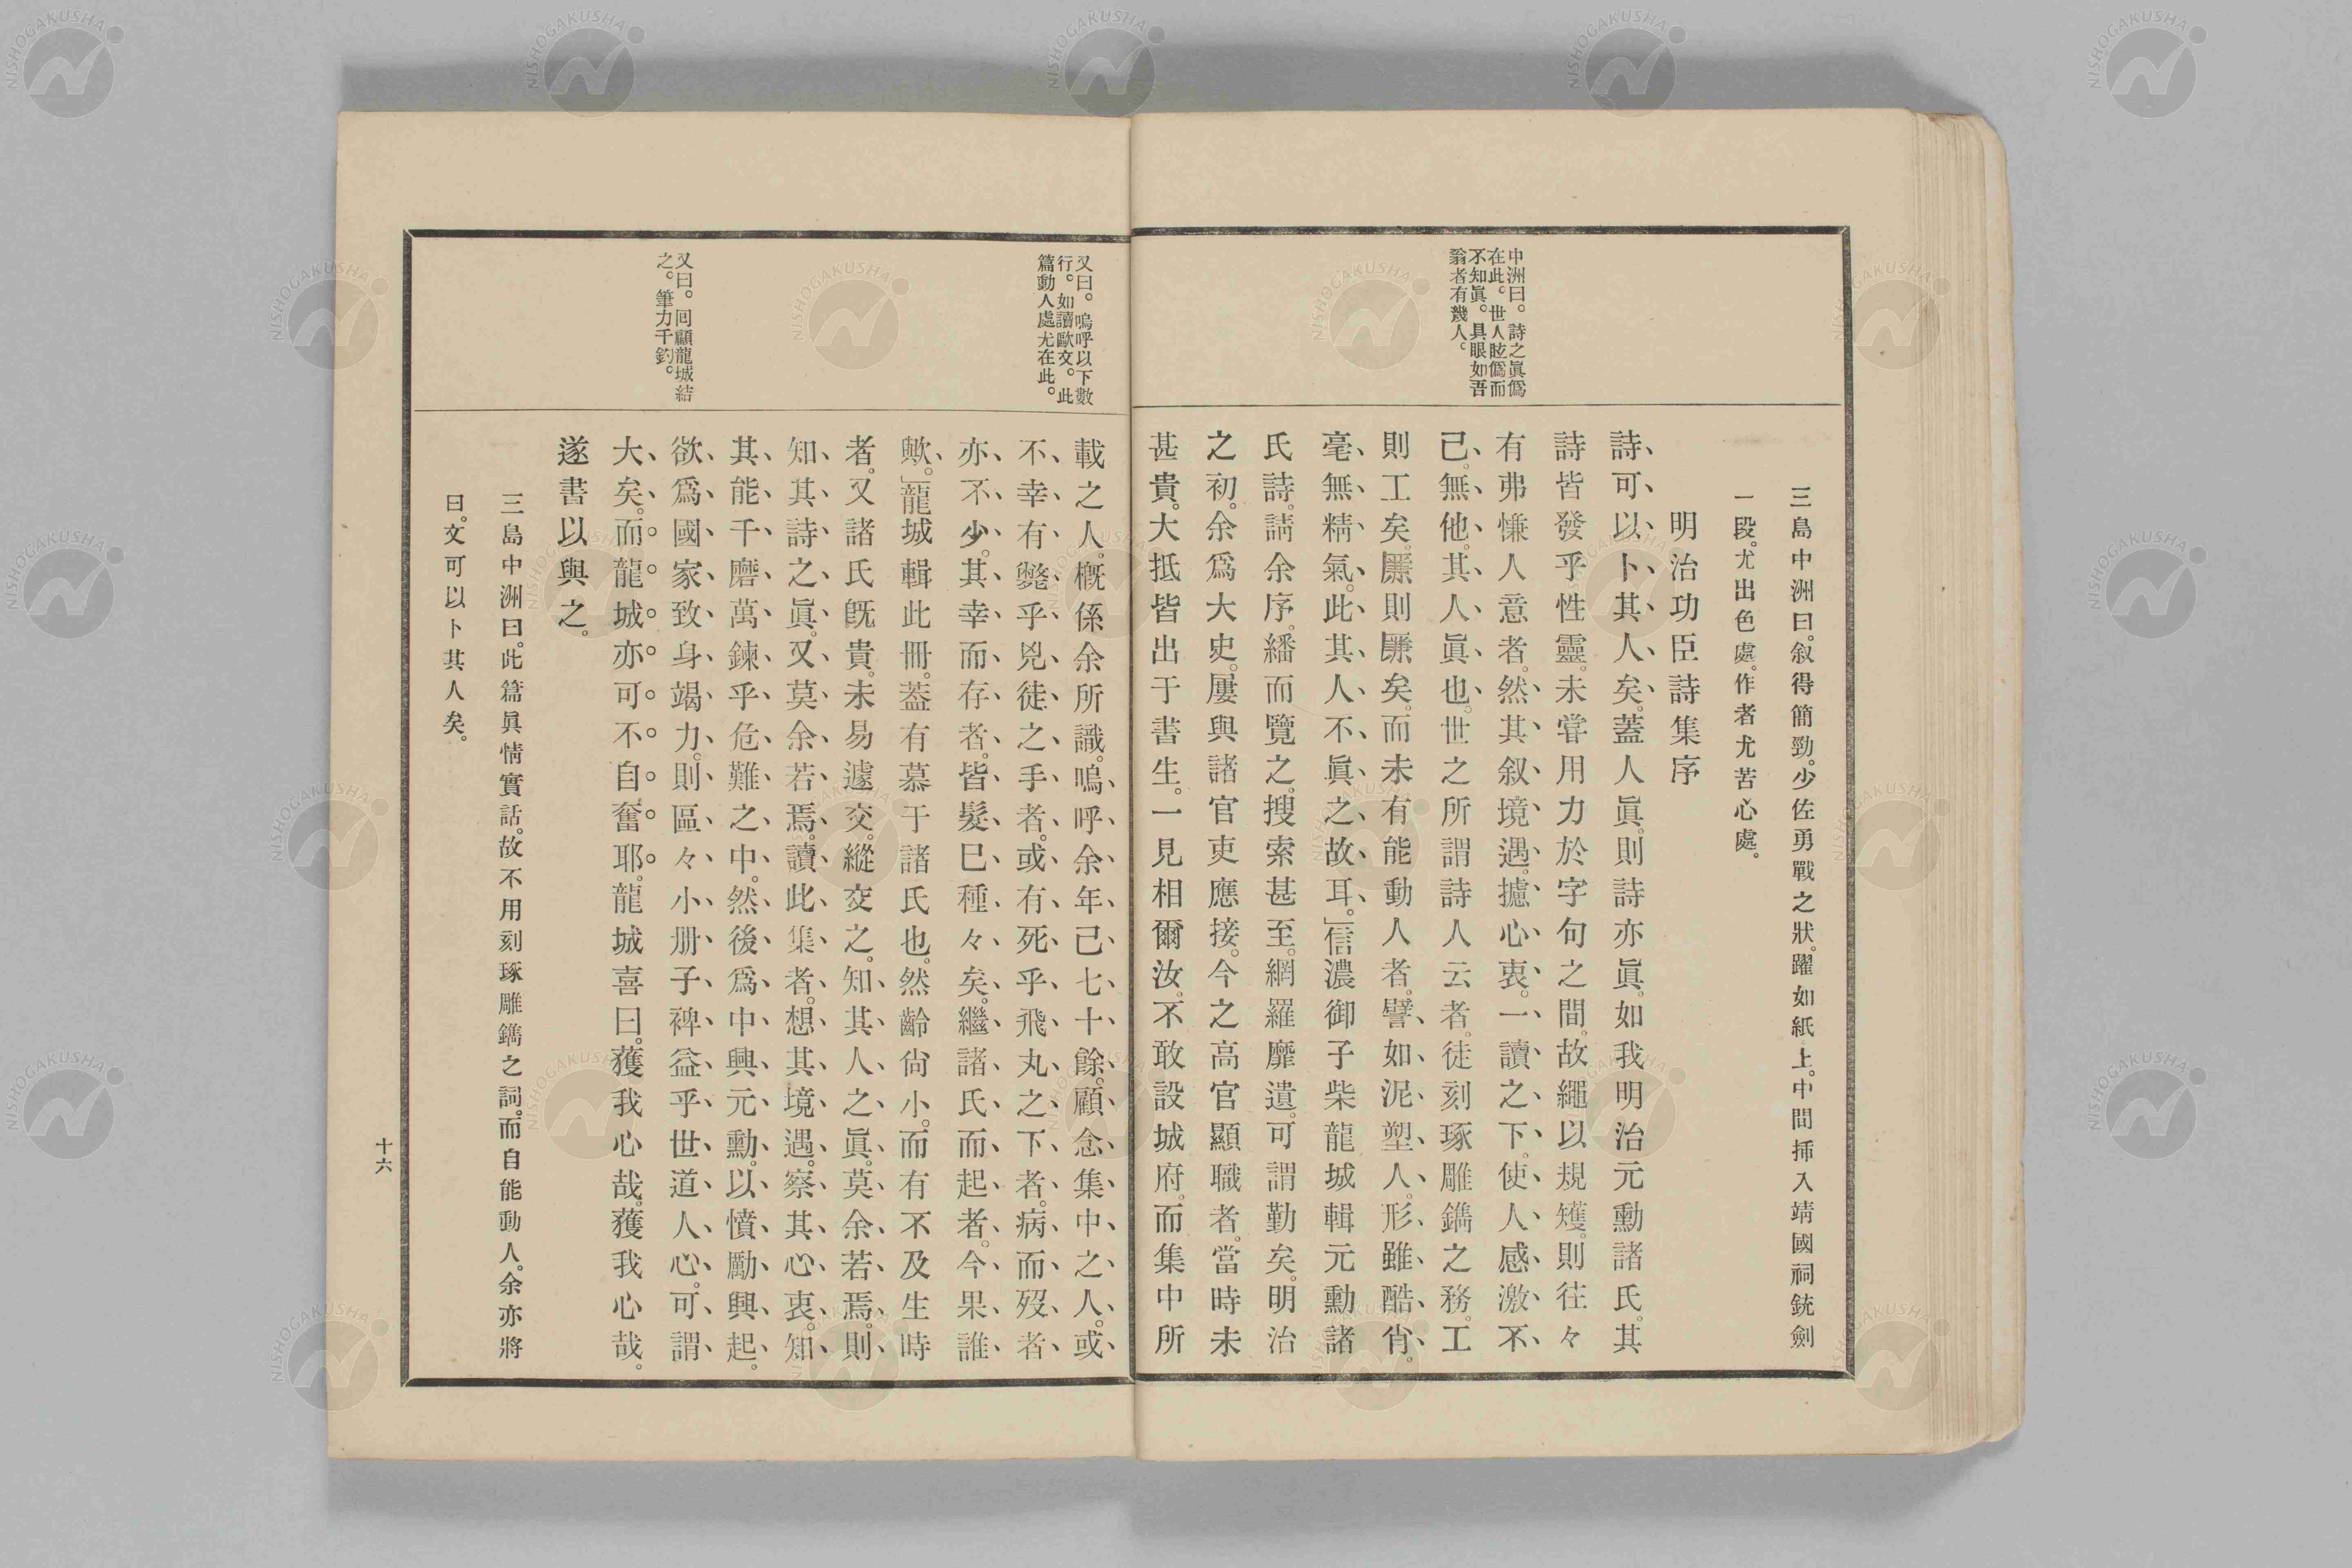 三島中洲曰。叙得簡勁。少佐勇戰之狀。躍如紙上。中間揷入靖國祠銃劍
一段。尤出色處。作者尤苦心處。
明治功臣詩集序
詩可以卜其人矣。蓋人眞。則詩亦眞。如我明治元勳諸氏。其
詩皆發乎性靈。未甞用力於字句之間。故繩以規矱。則徃々
有弗慊人意者。然其叙境遇。攄心衷。一讀之下。使人感激不
已。無他。其人眞也。世之所謂詩人云者。徒刻琢雕鐫之務。工
則工矣。驟則驟矣。而未有能動人者。譬如泥塑人。形雖酷肖。
毫無精氣。此其人不眞之故耳。」信濃御子柴龍城輯元勳諸
氏詩。請余序。繙而覽之。搜索甚至。網羅靡遺。可謂勤矣。明治
之初。余爲大史。屢與諸官吏應接。今之高官顯職者。當時未
甚貴。大抵皆出于書生。一見相爾汝。不敢設城府。而集中所
中洲曰。詩之眞僞
在此。世人眩僞而
不知眞。具眼如吾
翁者有幾人。
載之人。槪係余所識。嗚呼余年已七十餘。顧念集中之人。或
不幸有斃乎兇徒之手者。或有死乎飛丸之下者。病而歿者
亦不少。其幸而存者。皆髮已種々矣。繼諸氏而起者。今果誰
歟。」龍城輯此冊。蓋有慕于諸氏也。然齡尙小。而有不及生時
者。又諸氏旣貴。未易遽交。縱交之。知其人之眞。莫余若焉。則
知其詩之眞。又莫余若焉。讀此集者。想其境遇。察其心衷。知
其能千磨萬鍊乎危難之中。然後爲中興元勳。以憤勵興起。
欲爲國家致身竭力。則區々小册子裨益乎世道人心。可謂
大矣。而龍城亦可不自奮耶。龍城喜曰。獲我心哉。獲我心哉。
遂書以與之。
三島中洲曰。此篇眞情實話。故不用刻琢雕鐫之詞。而自能動人。余亦將
曰。文可以卜其人矣。
又曰。嗚呼以下數
行。如讀歐文。此
篇動人處尤在此。
又曰。回顧龍城結
之。筆力千鈞。
十六